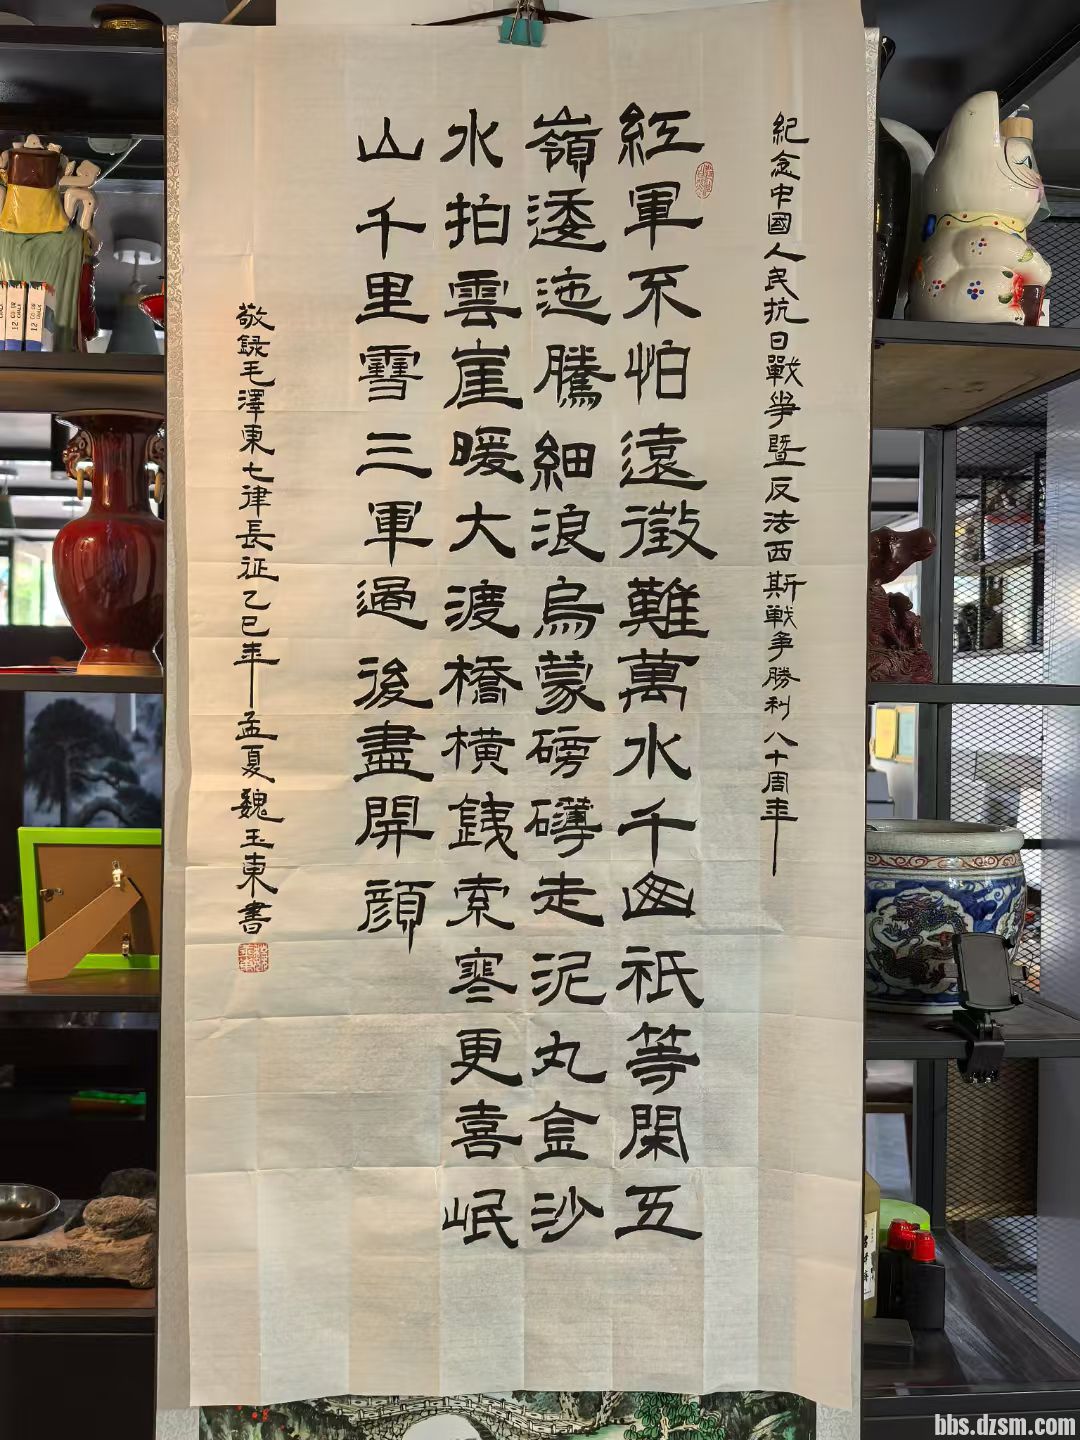 紀念中國人民抗日戰爭暨反法西斯戰争勝利八十周年
紅軍不怕遠徵難萬水千山祇等閑五
嶺逶迤騰細浪烏蒙磅礴走泥丸金沙
水拍雲崖暖大渡橋橫鐵索寒更喜岷
山千里雪三軍過後盡開顔
敬録毛澤東七律長征乙巳年孟夏魏玉東書
bbs.dzsm.com